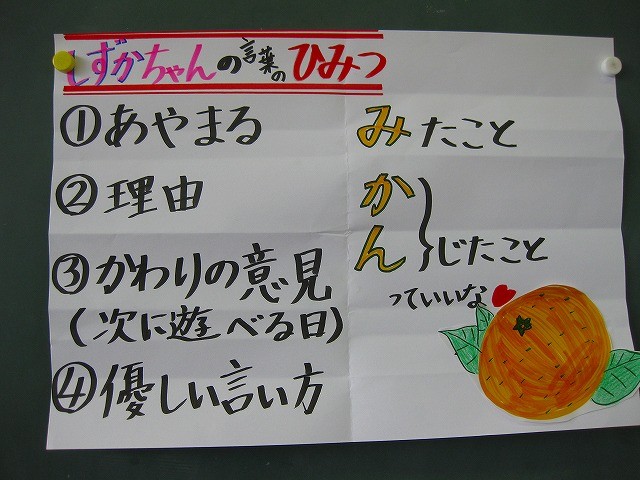 しずかちゃんの言葉のひみつ
①あやまる
②理由
③かわりの意見
(次に遊べる日)
④優しい言い方
みたこと
かん}じたこと
っていいな♥